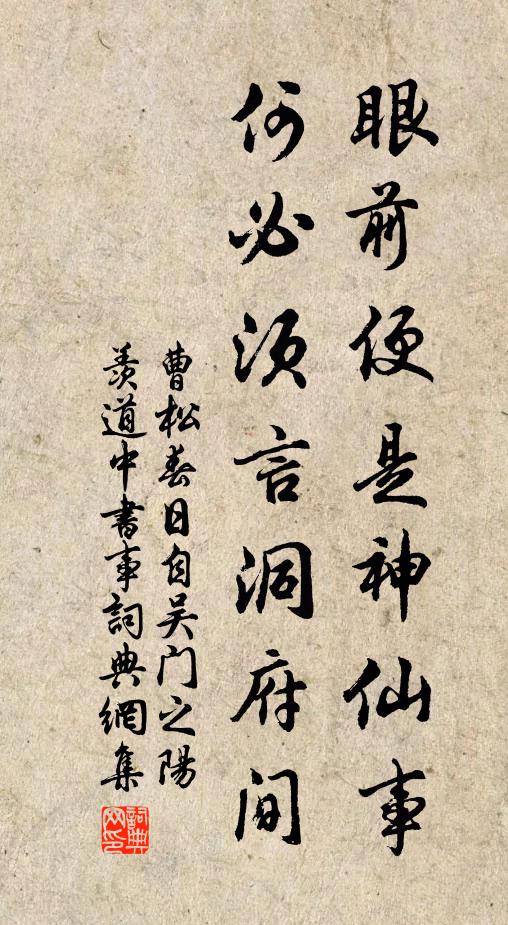 眼前便是神仙事
何必須言洞府間
曹松春日自吴门之陽
羨道中書事詞典網集
詞典网印